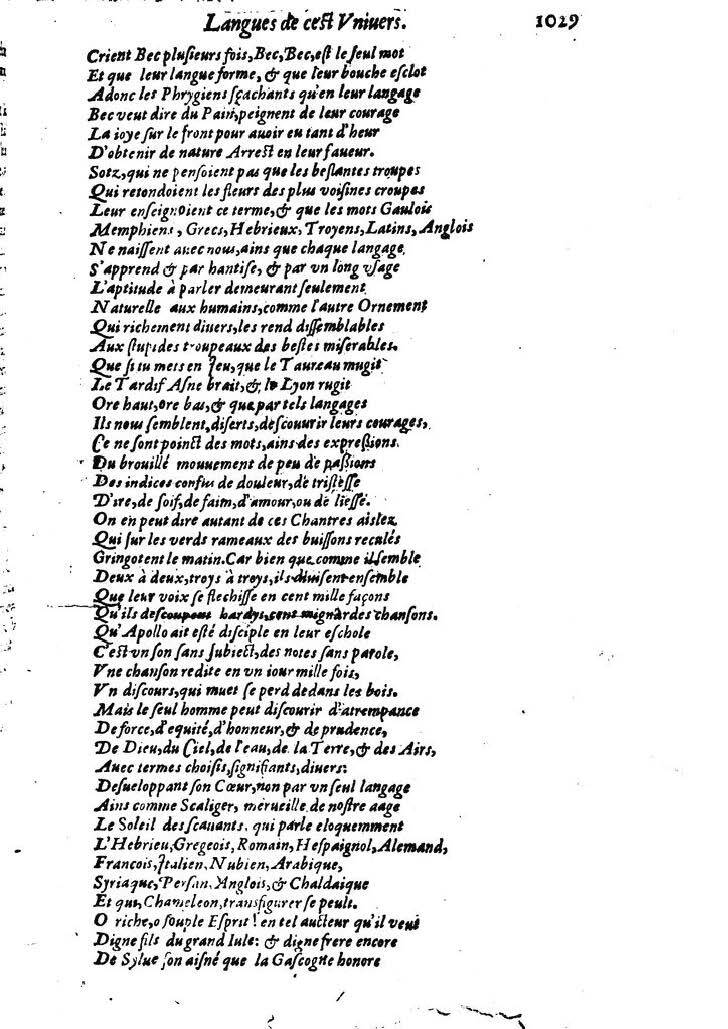 Langues de cest Vniuers. 1029
Crient Bec plusieurs fois, Bec, Bec, est le seul mot
Et que leur langue forme, & que leur bouche esclot
Adonc les Phrygiens sçachants qu'en leur langage
Bec veut dire du Pain, peignent de leur courage
La ioye sur le front pour auoir eu tant d'heur
D'obtenir de nature Arrest en leur faueur.
Sotz, qui ne pensoient pas que les beslantes troupes
Qui retondoient les fleurs des plus voisines croupes
Leur enseignoient ce terme, & que les mots Gaulois
Memphiens, Grecs, Hebrieux, Troyens, Latins, Anglois
Ne naissent auec nous, ains que chaque langage,
S'apprend & par hantise, & par vn long vsage
L'aptitude à parler demeurant seulement
Naturelle aux humains, comme l'autre Ornement
Qui richement diuers, les rend dissemblables
Aux stupides troupeaux des bestes miserables.
Que si tu mets en Jeu, que le Taureau mugit
Le Tardif Asne brait, & le Lyon rugit
Ore haut, ore bas, & que par tels langages
Ils nous semblent, diserts, descouurir leurs courages,
Ce ne sont poinct des mots, ains des expressions
Du brouillé mouuement de peu de passions
Des indices confus de douleur, de tristesse
D'ire, de soif, de faim, d'amour, ou de liesse.
On en peut dire autant de ces Chantres aislez
Qui sur les verds rameaux des buissons reculés
Gringotent le matin. Car bien que comme il semble
Deux à deux, troys à troys, ils diuisent ensemble
Que leur voix se flechisse en cent mille façons
Qu'ils descoupent hardys, cent mignardes chansons.
Qu'Apollo ait esté disciple en leur eschole
C'est vn son sans subiect, des notes sans parole,
Vne chanson redite en vn iour mille fois,
Vn discours, qui muet se perd dedans les bois.
Mais le seul homme peut discourir d'atrempance
De force, d'equité, d'honneur, & de prudence,
De Dieu, du Ciel, de l'eau, de la Terre, & des Airs,
Auec termes choisis, signifiants, diuers:
Desueloppant son Cœur, non par vn seul langage
Ains comme Scaliger, merueille de nostre aage
Le Soleil des scauants, qui parle eloquemment
L'Hebrieu, Gregeois, Romain, Hespaignol, Alemand,
Francois, Italien, Nubien, Arabique,
Syriaque, Persan, Anglois, & Chaldaique
Et qui, Chameleon, transfigurer se peult.
O riche, o souple Esprit! en tel aucteur qu'il veut
Digne fils du grand Iule: & digne frere encore
De Sylue son aisné que la Gascogne honore